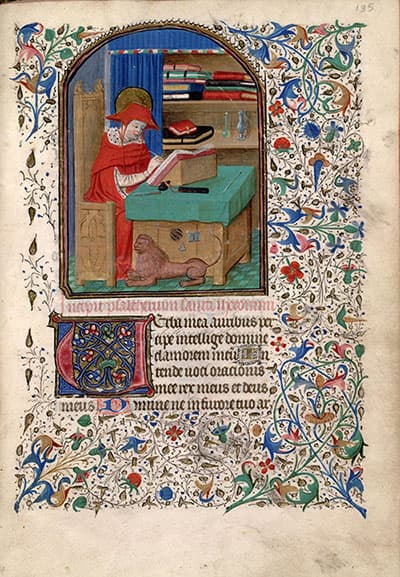 195
Incipit psalterium sancti iheronimi
Verba mea auribus per
cipe intellige domine
clamorem meum In
tende voci orationis
mee rex meus et deus
meus Domine ne in furore tuo ar